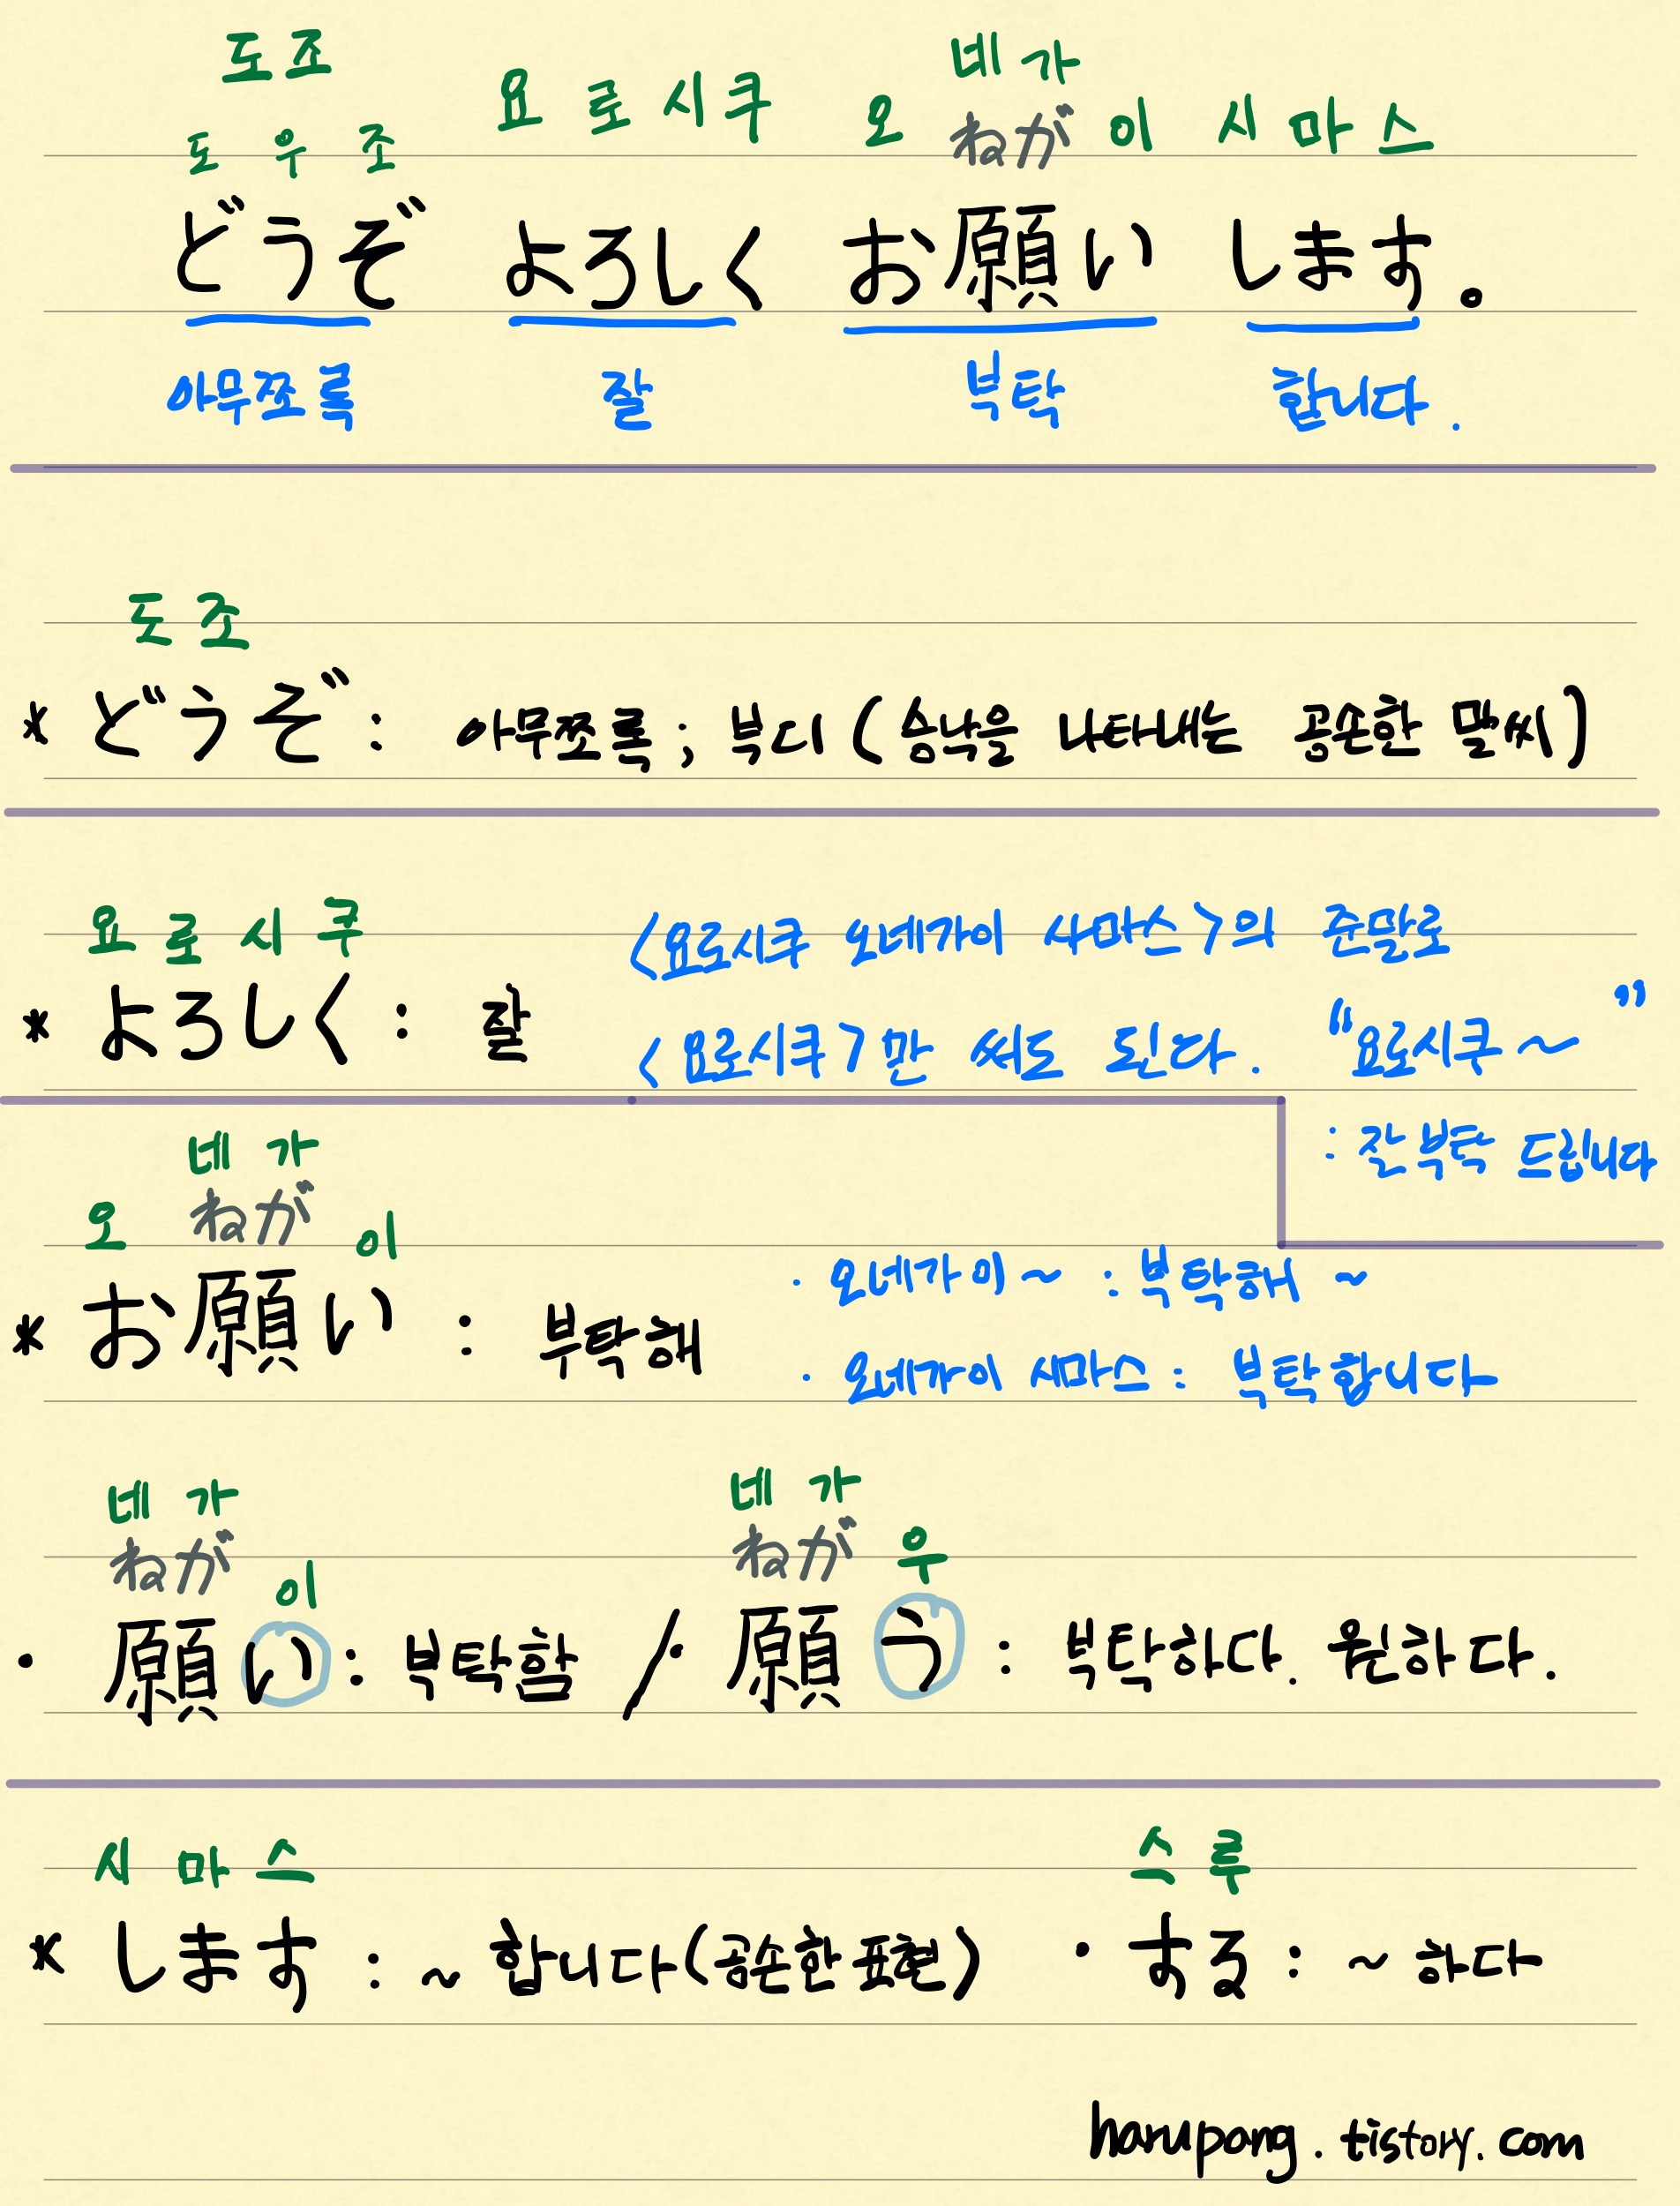 도조
네가
도우조 요로시쿠 오 ねが 이 시마스
どうぞ よろしく お願い します。
아무쪼록 잘 부탁 합니다.
도조
* どうぞ : 아무쪼록 ; 부디 (승낙을 나타내는 공손한 말씨)
요로시쿠
* よろしく : 잘
<요로시쿠 오네가이 시마스>의 준말로
<요로시쿠>만 써도 된다. "요로시쿠~"
: 잘 부탁 드립니다
네가
오 ねが 이
* お願い : 부탁해
· 오네가이~ : 부탁해~
· 오네가이 시마스 : 부탁합니다
네가 네가
ねが 이 ねが 우
· 願い : 부탁함 / 願う : 부탁하다. 원하다.
시마스 스루
* します : ~합니다(공손한 표현) · する : ~하다
harupang.tistory.com